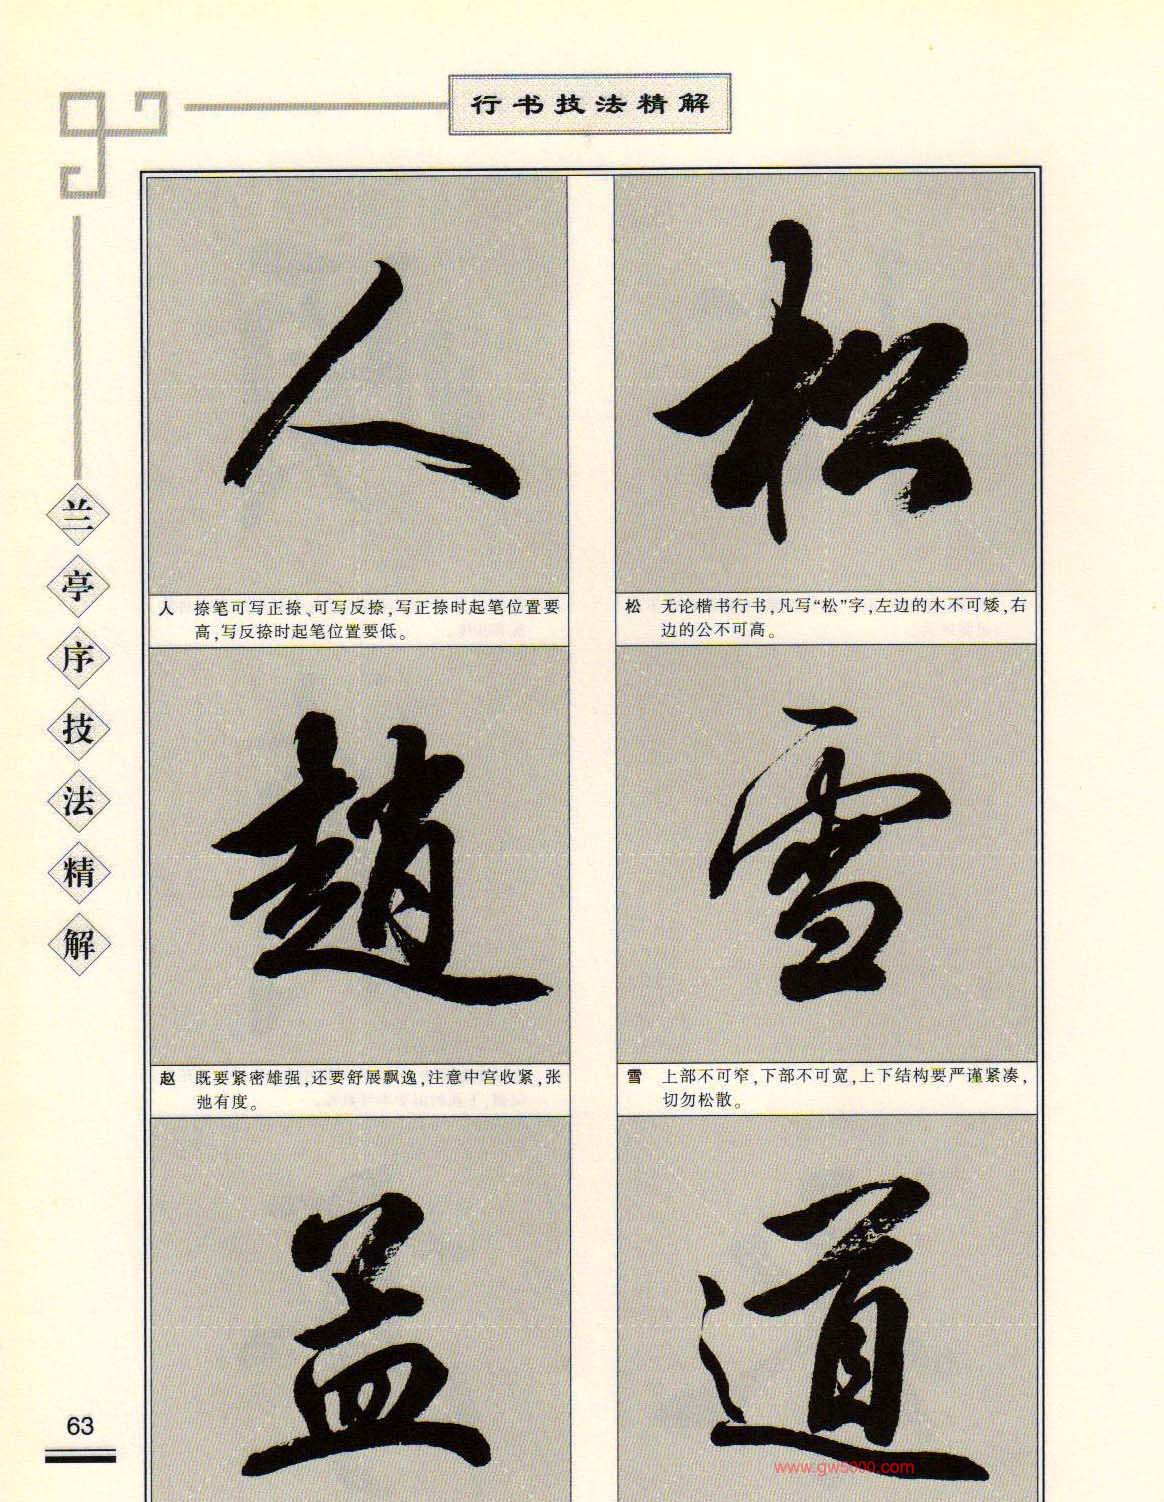 行书技法精解
兰亭序技法精解
人
松
人 捺笔可写正捺、可写反捺,写正捺时起笔位置要
高,写反捺时起笔位置要低。
松 无论楷书行书,凡写“松”字,左边的木不可矮,右
边的公不可高。
趙
雪
赵 既要紧密雄强,还要舒展飘逸,注意中宫收紧,张
弛有度。
雪 上部不可窄,下部不可宽,上下结构要严谨紧凑,
切勿松散。
盖
道
63
www.gw5000.com